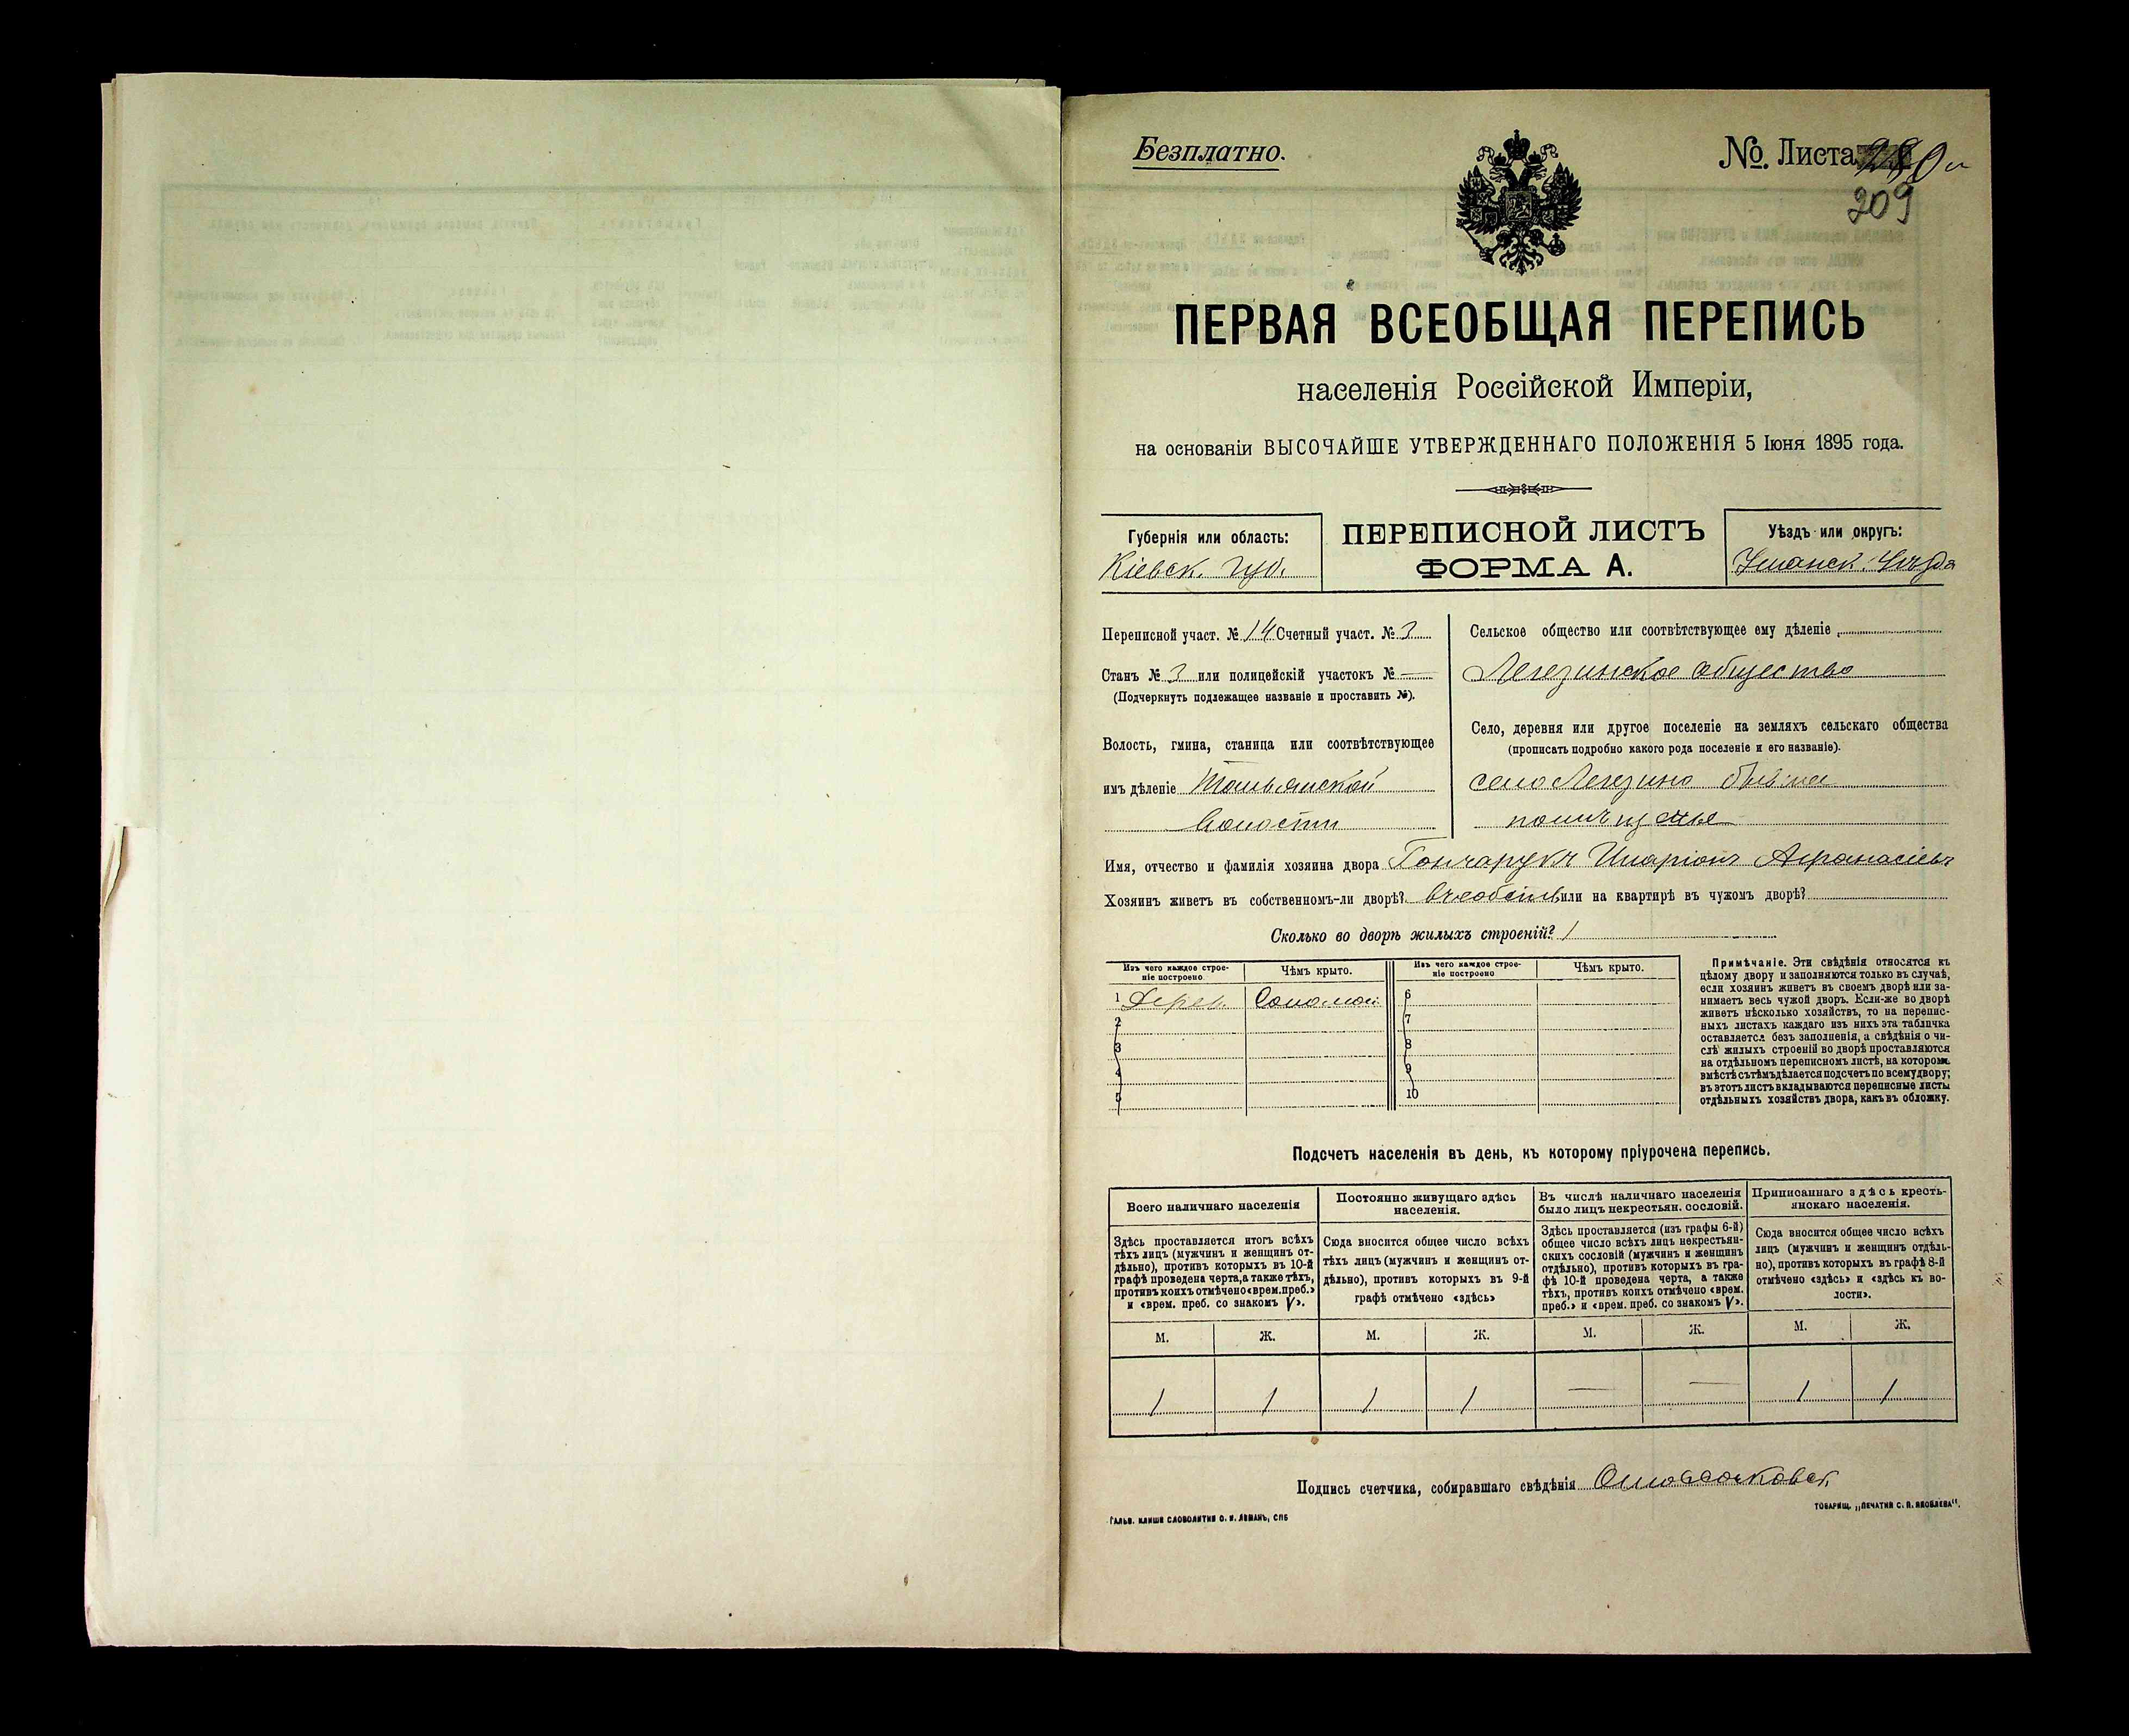 Безплатно.
№. Листа
209
ПЕРВАЯ ВСЕОБЩАЯ ПЕРЕПИСЬ
населенія Россійской Имперіи,
на основаніи ВЫСОЧАЙШЕ УТВЕРЖДЕННАГО ПОЛОЖЕНІЯ 5 Іюня 1895 года.
Губернія или область:
Кіевск. губ.
ПЕРЕПИСНОЙ ЛИСТЪ
ФОРМА А.
Уѣздъ или округъ:
Уманск. Уѣзда
Переписной участ. № 14 Счетный участ. № 3
Станъ № 3 или полицейскій участокъ № —
(Подчеркнуть подлежащее названіе и проставить №).
Волость, гмина, станица или соотвѣтствующее
имъ дѣленіе Тальянской
Волости
Сельское общество или соотвѣтствующее ему дѣленіе
Легезинское общество
Село, деревня или другое поселеніе на земляхъ сельскаго общества
(прописать подробно какого рода поселеніе и его названіе).
село Легезино бывшее
помѣщичье
Имя, отчество и фамилія хозяина двора Гончарукъ Иларіонъ Афанасіевъ
Хозяинъ живетъ въ собственномъ-ли дворѣ? въ собств. или на квартирѣ въ чужомъ дворѣ?
Сколько во дворѣ жилыхъ строеній? 1
Изъ чего каждое строе-
ніе построено
Чѣмъ крыто.
Изъ чего каждое строе-
ніе построено
Чѣмъ крыто.
1 Дерев. Соломой
2
3
4
5
6
7
8
9
10
Примѣчаніе. Эти свѣдѣнія относятся къ
цѣлому двору и заполняются только въ случаѣ,
если хозяинъ живетъ въ своемъ дворѣ или за-
нимаетъ весь чужой дворъ. Если-же во дворѣ
живетъ нѣсколько хозяйствъ, то на перепис-
ныхъ листахъ каждаго изъ нихъ эта табличка
оставляется безъ заполненія, а свѣдѣнія о чи-
слѣ жилыхъ строеній во дворѣ проставляются
на отдѣльномъ переписномъ листѣ, на которомъ
вмѣстѣ съ тѣмъ дѣлается подсчетъ по всему двору;
въ этотъ листъ вкладываются переписные листы
отдѣльныхъ хозяйствъ двора, какъ въ обложку.
Подсчетъ населенія въ день, къ которому пріурочена перепись.
Всего наличнаго населенія
Здѣсь проставляется итогъ всѣхъ
тѣхъ лицъ (мужчинъ и женщинъ от-
дѣльно), противъ которыхъ въ 10-й
графѣ проведена черта, а также тѣхъ,
противъ коихъ отмѣчено «врем. преб.»
и «врем. преб. со знакомъ V».
Постоянно живущаго здѣсь
населенія.
Сюда вносится общее число всѣхъ
тѣхъ лицъ (мужчинъ и женщинъ от-
дѣльно), противъ которыхъ въ 9-й
графѣ отмѣчено «здѣсь»
Въ числѣ наличнаго населенія
было лицъ некрестьян. сословій.
Здѣсь проставляется (изъ графы 6-й)
общее число всѣхъ лицъ некрестьян-
скихъ сословій (мужчинъ и женщинъ
отдѣльно), противъ которыхъ въ гра-
фѣ 10-й проведена черта, а также
тѣхъ, противъ коихъ отмѣчено «врем.
преб.» и «врем. преб. со знакомъ V».
Приписаннаго здѣсь кресть-
янскаго населенія.
Сюда вносится общее число всѣхъ
лицъ (мужчинъ и женщинъ отдѣль-
но), противъ которыхъ въ графѣ 8-й
отмѣчено «здѣсь» и «здѣсь къ во-
лости».
М. Ж. М. Ж. М. Ж. М. Ж.
1 1 1 1 — — 1 1
Подпись счетчика, собиравшаго свѣдѣнія
ГАЛЬВ. КЛИШЕ СЛОВОЛИТНИ О. И. ЛЕМАНЪ, СПБ
ТОВАРИЩ. „ПЕЧАТНЯ С. П. ЯКОВЛЕВА".